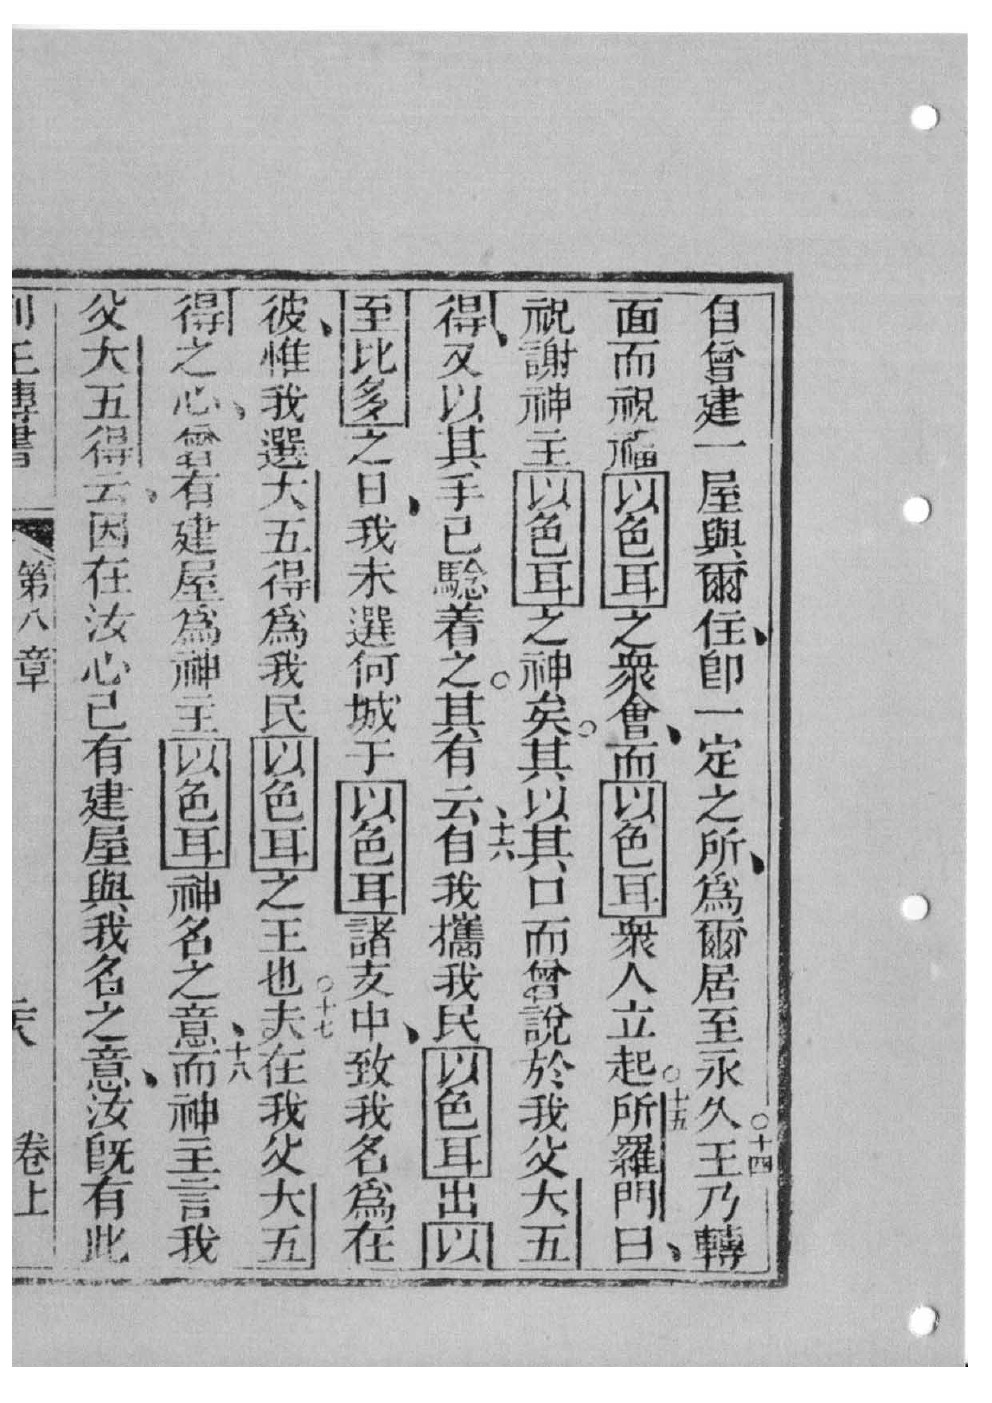 自曾建一屋與爾住、卽一定之所、爲爾居至永久○十四王乃轉
面而祝福以色耳之衆會、而以色耳衆人立起○十五所羅門曰、
祝謝神主以色耳之神矣○其以其口而曾說於我父大五
得、又以其手已騐着之○其有云、十六自我攜我民以色耳出以
至比多之日、我未選何城于以色耳諸支中、致我名爲在
彼、惟我選大五得爲我民以色耳之王也○十七夫在我父大五
得之心、曾有建屋爲神主以色耳神名之意、十八而神主言我
父大五得云、因在汝心已有建屋與我名之意、汝旣有此
列王傳書 第八章 卷上